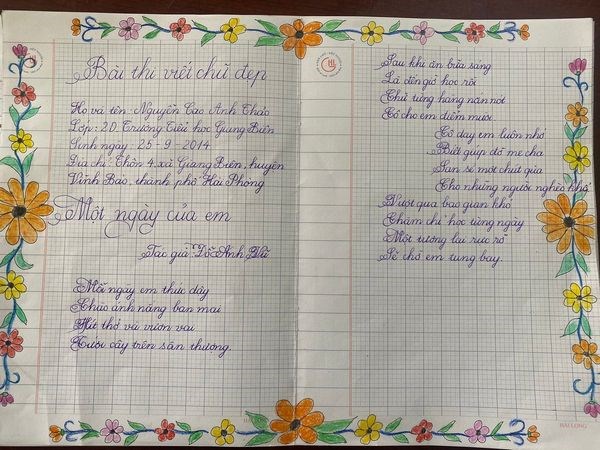 Bài thi viết chữ đẹp
Họ và tên: Nguyễn Cao Anh Thảo
Lớp: 2D Trường Tiểu học Giang Biên
Sinh ngày: 25-9-2014
Địa chỉ: Thôn 4 xã Giang Biên, huyện
Vĩnh Bảo, thành phố Hải Phòng
Một ngày của em
Tác giả: Đỗ Anh Vũ
Mỗi ngày em thức dậy
Chào ánh nắng ban mai
Hít thở và vươn vai
Tưới cây trên sân thượng.
Sau khi ăn bữa sáng
Là đến giờ học rồi
Chữ từng hàng nắn nót
Cô cho em điểm mười.
Cô dạy em luôn nhớ
Biết giúp đỡ mẹ cha
San sẻ một chút quà
Cho những người nghèo khổ
Vượt qua bao gian khó
Chăm chỉ học từng ngày
Một tương lai rực rỡ
Sẽ chờ em tung bay.
HẢI LONG